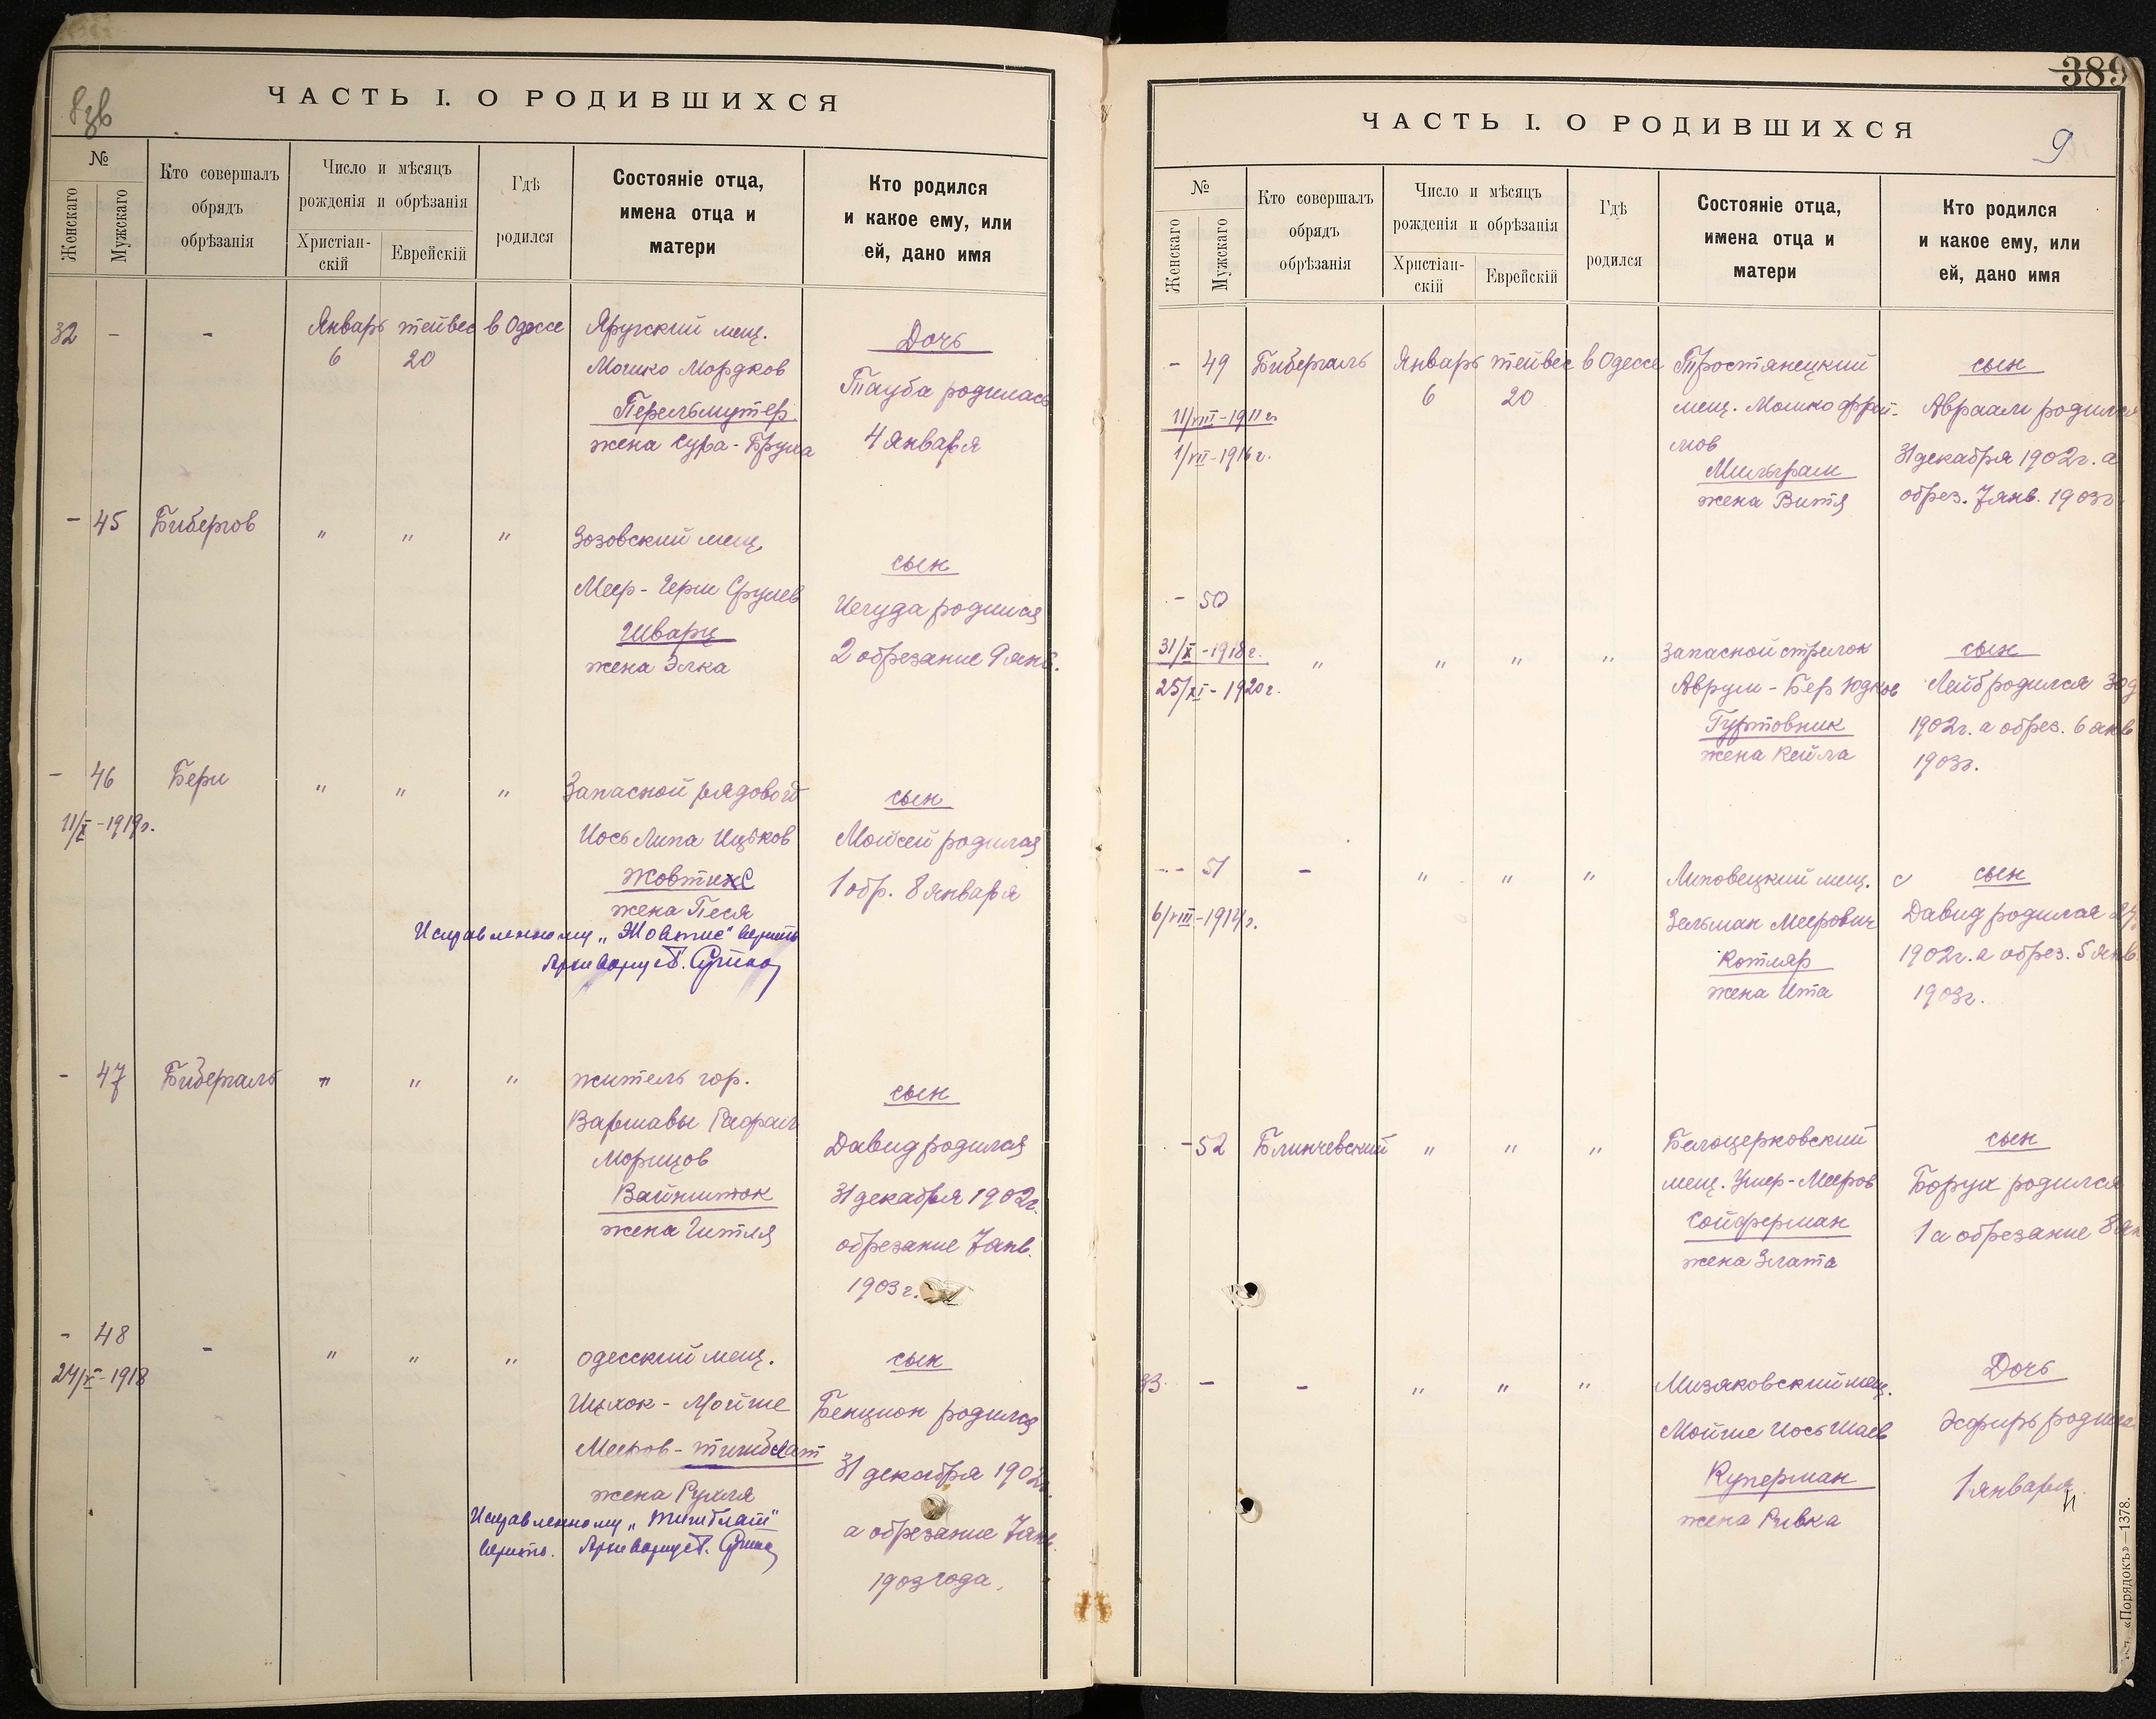 ЧАСТЬ I. О РОДИВШИХСЯ
№
Женскаго
Мужскаго
Кто совершалъ
обрядъ
обрѣзанія
Число и мѣсяцъ
рожденія и обрѣзанія
Христіан-
скій
Еврейскій
Гдѣ
родился
Состояніе отца,
имена отца и
матери
Кто родился
и какое ему, или
ей, дано имя
32 - - Январь тейвес в Одессе
6 20
Яругский мещ.
Мошко Мордков
Перельмутер
жена Сура-Бруха
Дочь
Тауба родилась
4 января
- 45 Бибергов " " "
Зозовский мещ.
Меер-Герш Срулев
Шварц
жена Элка
сын
Иегуда родился
2 обрезание 9 янв.
- 46 Бери " " "
11/X-1919г.
Запасной рядовой
Иось Липа Ицьков
Жовтис
жена Песя
Исправленному „Жовтис" верить
Архивариус
сын
Мойсей родился
1 обр. 8 января
- 47 Бибергаль " " "
житель гор.
Варшавы Рафаил
Морицов
Вайншток
жена Гитля
сын
Давид родился
31 декабря 1902г.
обрезание 7 янв.
1903 г.
- 48 - " " "
24/V-1918
одесский мещ.
Ицхок-Мойше
Мееров-Тишблат
жена Рухля
Исправленному „Тишблат"
верить. Архивариус
сын
Бенцион родился
31 декабря 1902г.
а обрезание 7 янв.
1903 года.
389
ЧАСТЬ I. О РОДИВШИХСЯ
9
№
Женскаго
Мужскаго
Кто совершалъ
обрядъ
обрѣзанія
Число и мѣсяцъ
рожденія и обрѣзанія
Христіан-
скій
Еврейскій
Гдѣ
родился
Состояніе отца,
имена отца и
матери
Кто родился
и какое ему, или
ей, дано имя
- 49 Бибергаль Январь тейвес в Одессе
6 20
11/VIII-1911г.
1/VII-1916г.
Тростянецкий
мещ. Мошко Фрой-
мов
Мильграм
жена Витя
сын
Авраам родился
31 декабря 1902г. а
обрез. 7 янв. 1903г
- 50
31/X-1918г.
25/XI-1920г.
" " " "
Запасной стрелок
Аврум-Бер Юдков
Гуртовник
жена Кейла
сын
Лейб родился 30 д
1902г. а обрез. 6 янв
1903г.
- 51 - " " "
6/VIII-1914г.
Липовецкий мещ.
Зельман Меерович
Котляр
жена Ита
сын
Давид родился
1902г. а обрез. 5 янв
1903г.
- 52 Блинчевский " " "
Белоцерковский
мещ. Ушер-Мееров
Сойферман
жена Злата
сын
Борух родился
1 а обрезание 8 ян
33 - - " " "
Мизяковский мещ.
Мойше Иось Шаев
Куперман
жена Ривка
Дочь
Эсфирь родил
1 января
«Порядокъ»—1378.